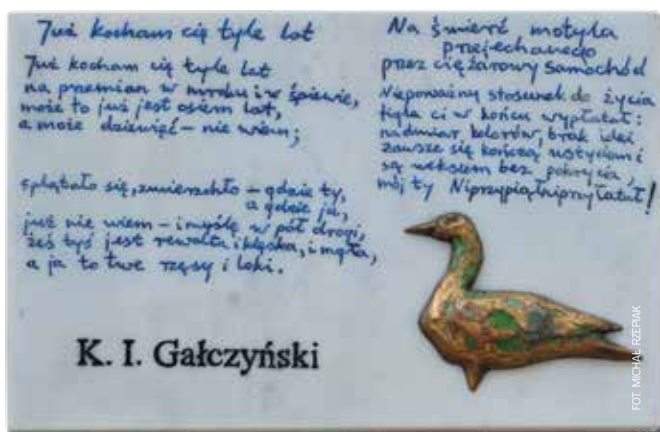 Już kocham cię tyle lat
Już kocham cię tyle lat
na przemian w mroku i w śpiewie,
może to już jest osiem lat,
a może dziewięć – nie wiem;
splątało się, zmierzchło – gdzie ty,
a gdzie ja,
już nie wiem – i myślę w pół drogi,
żeś tyś jest rewolta i klęska, i mgła,
a ja to twe rzęsy i loki.
Na śmierć motyla
przejechanego
przez ciężarowy samochód
Niepoważny stosunek do życia
figla ci w końcu wypłatał:
nadmiar kolorów, brak idei
zawsze się kończą ustydami
są wekslem bez pokrycia,
mój ty Niprzypiąłniprzyłatał!
K. I. Gałczyński
FOT. MICHAŁ RZEPIAK